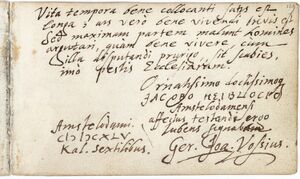 Vita tempora bene collocanti satis est
longa; ars vero bene vivendi brevis est
Sed maximam partem malunt homines
argutari, quam bene vivere cum
illa disputandi prurigo sit scabies,
imo pestis Ecclesiarum.
Ornatissimo doctissimoq
JACOBO HEIBLOCQ
Amstelodamensi
affectus testandi ergo
lubens signabam
Ger. Joa. Vossius.
Amstelodami.
CIƆIƆCXLV.
Kal. sextilibus.